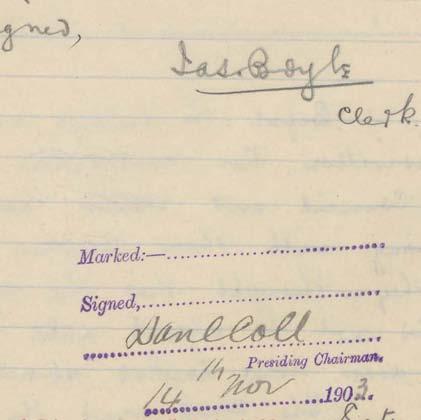 igned,
Jas. Boyle
Clerk.
Marked:—
Signed,
Danl Coll
Presiding Chairman.
14th Nov 1903.